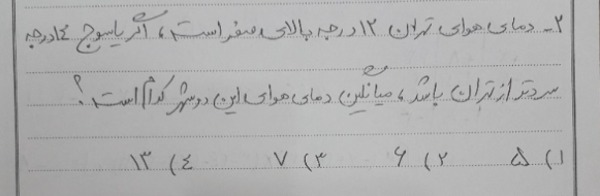 ۲- دمای هوای تهران ۱۲ درجه بالای صفر است، اگر یاسوج ۱۴ درجه
سردتر از تهران باشد، میانگین دمای هوای این دو شهر کدام است؟
۱) ۵ ۲) ۶ ۳) ۷ ۴) ۱۳